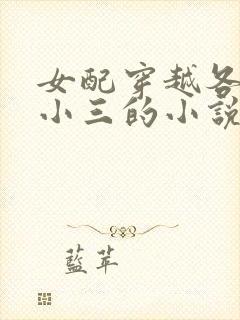 女配穿越各
小三的小說
藍苹